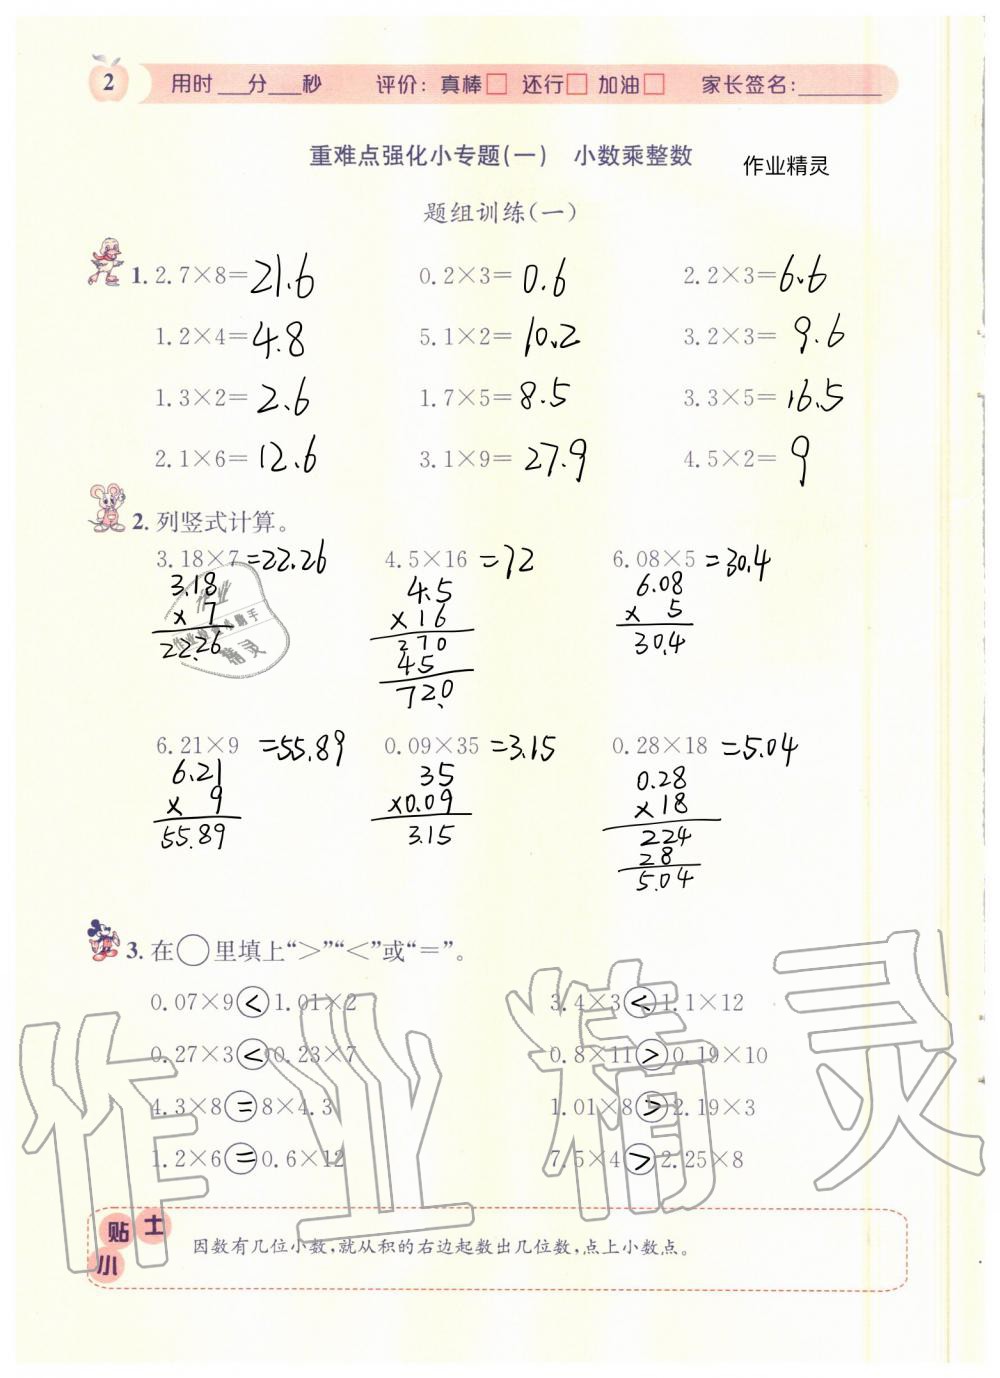 2 用时___分___秒 评价：真棒□ 还行□ 加油□ 家长签名：________
重难点强化小专题(一) 小数乘整数 作业精灵
题组训练(一)
1. 2.7×8=21.6 0.2×3=0.6 2.2×3=6.6
1.2×4=4.8 5.1×2=10.2 3.2×3=9.6
1.3×2=2.6 1.7×5=8.5 3.3×5=16.5
2.1×6=12.6 3.1×9=27.9 4.5×2=9
2. 列竖式计算。
3.18×7=22.26 4.5×16=72 6.08×5=30.4
3.18 4.5 6.08
× 7 ×16 × 5
22.26 270 30.4
45
72.0
6.21×9=55.89 0.09×35=3.15 0.28×18=5.04
6.21 35 0.28
× 9 ×0.09 ×18
55.89 3.15 224
28
5.04
3. 在○里填上“＞”“＜”或“＝”。
0.07×9<1.01×2 3.4×3<1.1×12
0.27×3<0.23×7 0.8×11>0.19×10
4.3×8=8×4.3 1.01×8>2.19×3
1.2×6=0.6×12 7.5×4>2.25×8
作业精灵
小贴士
因数有几位小数，就从积的右边起数出几位数，点上小数点。